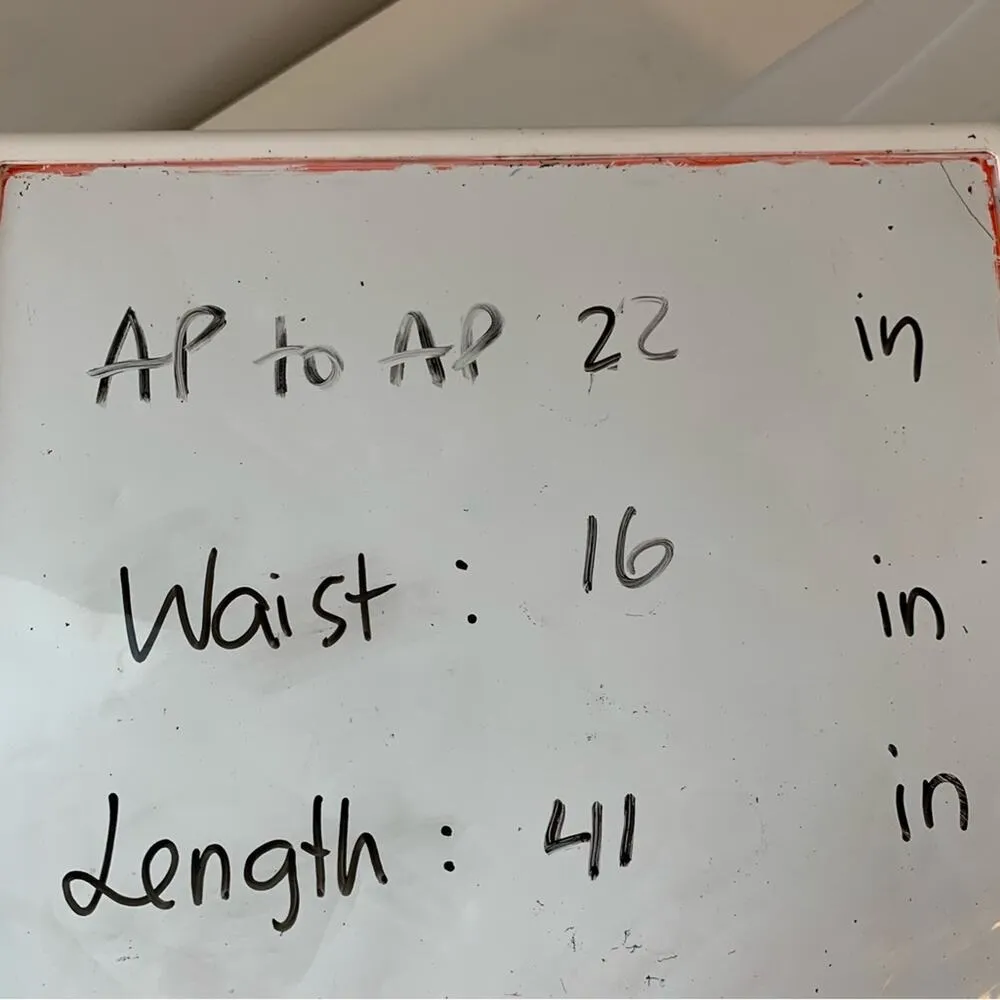 AP to AP 22 in
Waist : 16 in
Length : 41 in